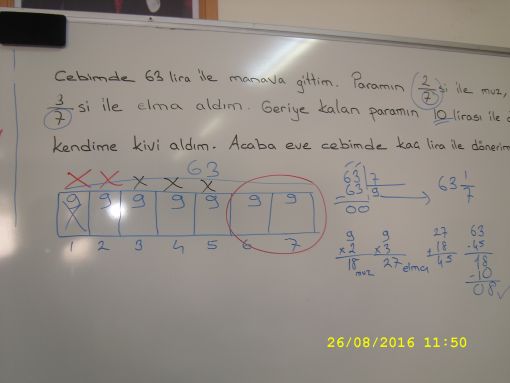 Cebimde 63 lira ile manava gittim. Paramın 2/7 si ile muz,
3/7 si ile elma aldım. Geriye kalan paramın 10 lirası ile
kendime kivi aldım. Acaba eve cebimde kaç lira ile dönerim
63
9 9 9 9 9 9 9
1 2 3 4 5 6 7
63 7
- 63 9
00
63 1/7
9 x2 18 muz
9 x3 27 elma
27 +18 45
63 -45 18 -10 08
26/08/2016 11:50